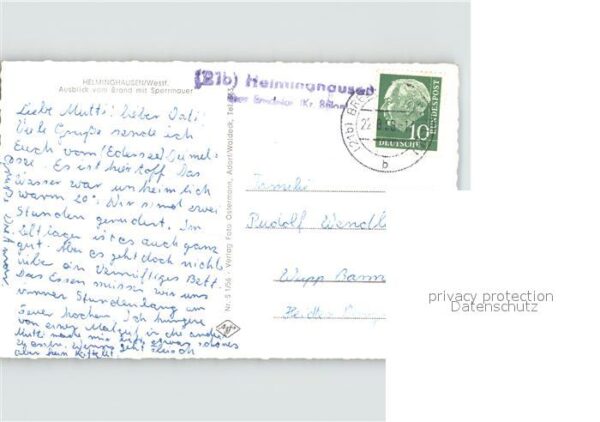 HELMINGHAUSEN/Westf.
Ausblick vom Brand mit Sperrmauer
(21b) Helminghausen
über Bredelar (Kr. Brilon)
(21b) BRE
22.
b
DEUTSCHE
BUNDESPOST
10
Liebe Mutti! Lieber Vati!
Viele Grüße sende ich
Euch vom (Edersee) Diemel-
see. Es ist hier toff. Das
Wasser war unheimlich
warm 20°. Wir sind zwei
Stunden gerudert. Im
Zeltlager ist es auch ganz
gut. Aber es geht doch nichts
über ein vernünftiges Bett.
Das Essen müssen wir uns
immer Stundenlang am
Feuer kochen. Ich hungere
von einer Mahlzeit in die andre
Mutti
aber kein
Familie
Rudolf Wendl
Wupp. Barm
Nr. S 1/56 - Verlag Foto Ostermann, Adorf/Waldeck, Tel.
Agfa
privacy protection
Datenschutz